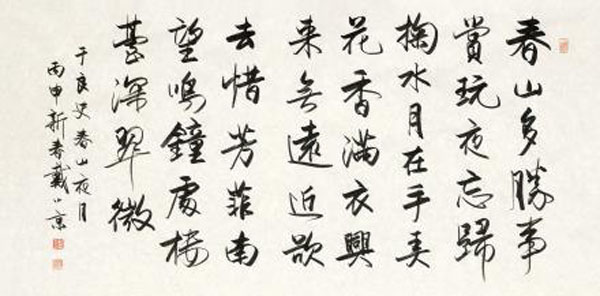 春山多勝事
賞玩夜忘歸
掬水月在手弄
花香滿衣興
來無遠近欲
去惜芳菲南
望鳴鐘處樓
臺深翠微
于良史春山夜月
丙申新春戴小京